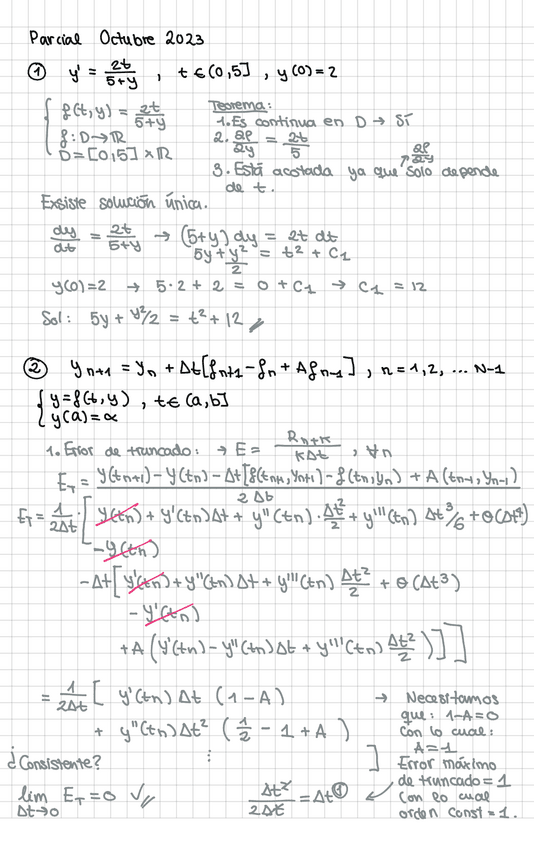 Parcial Octubre 2023
① y' = 2t/5+y , t ∈ (0,5] , y(0)=2
{ f(t,y) = 2t/5+y
f: D→ℝ
D=[0,5] × ℝ
Teorema:
1. Es continua en D → SÍ
2. ∂f/∂y = 2t/5
3. Está acotada ya que ↗∂f/∂y solo depende
de t.
Exsiste solución única.
dy/dt = 2t/5+y → (5+y) dy = 2t dt
5y + y²/2 = t² + C₁
y(0)=2 → 5·2 + 2 = 0 + C₁ → C₁ = 12
Sol: 5y + y²/2 = t² + 12 //
② y n+1 = yn + Δt[fn+1 - fn + A fn-1] , n = 1,2, ... N-1
{ y=f(t,y) , t ∈ (a,b]
y(a) = α
1. Error de truncado: → E = Rn+k/kΔt , ∀n
ET = y(tn+1) - y(tn) - Δt[f(tn+1, yn+1) - f(tn, yn) + A(tn-1, yn-1)/2Δt
ET = 1/2Δt [ y(tn) + y'(tn)Δt + y''(tn)·Δt²/2 + y'''(tn) Δt³/6 + Θ(Δt⁴)
- y(tn)
- Δt[ y'(tn) + y''(tn)Δt + y'''(tn) Δt²/2 + Θ(Δt³)
- y'(tn)
+ A (y'(tn) - y''(tn)Δt + y'''(tn) Δt²/2)]]
= 1/2Δt [ y'(tn) Δt (1-A)
+ y''(tn)Δt² (1/2 - 1 + A)
⋮ ]
→ Necesitamos
que: 1-A=0
Con lo cual:
A=1
Error máximo
de truncado = 1
Con lo cual
orden const = 1.
¿Consistente?
lim Δt→0 ET = 0 ✓//
Δt²/2Δt = Δt① ↙